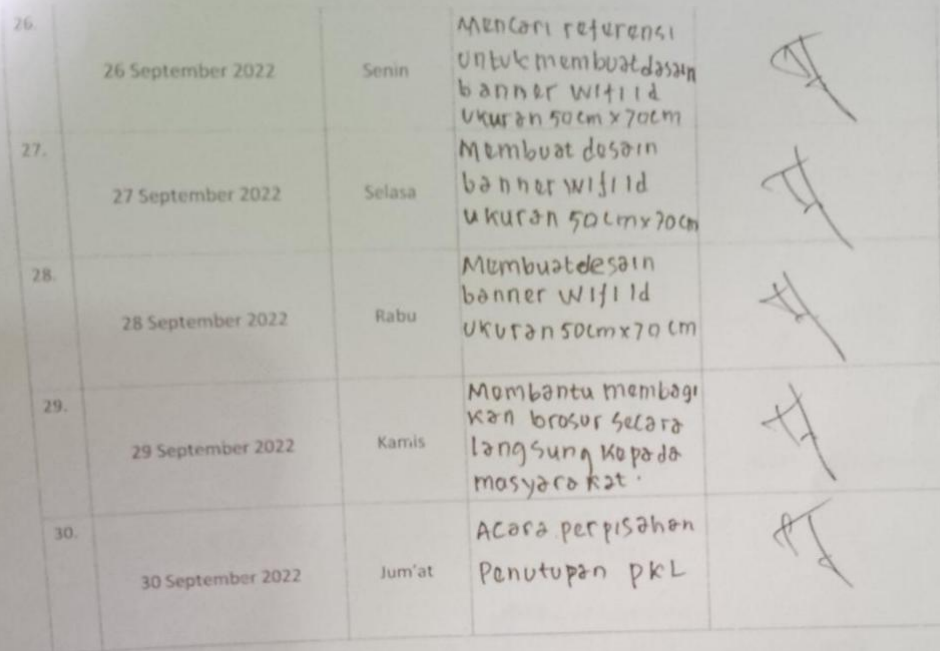 26.
26 September 2022
Senin
Mencari referensi
untuk membuat desain
banner wifi id
ukuran 50cm x 70cm
27.
27 September 2022
Selasa
Membuat desain
banner wifi id
ukuran 50cm x 70cm
28.
28 September 2022
Rabu
Membuat desain
banner wifi id
ukuran 50cm x 70 cm
29.
29 September 2022
Kamis
Membantu membagi
kan brosur secara
langsung kepada
masyarakat.
30.
30 September 2022
Jum'at
Acara perpisahan
Penutupan PKL